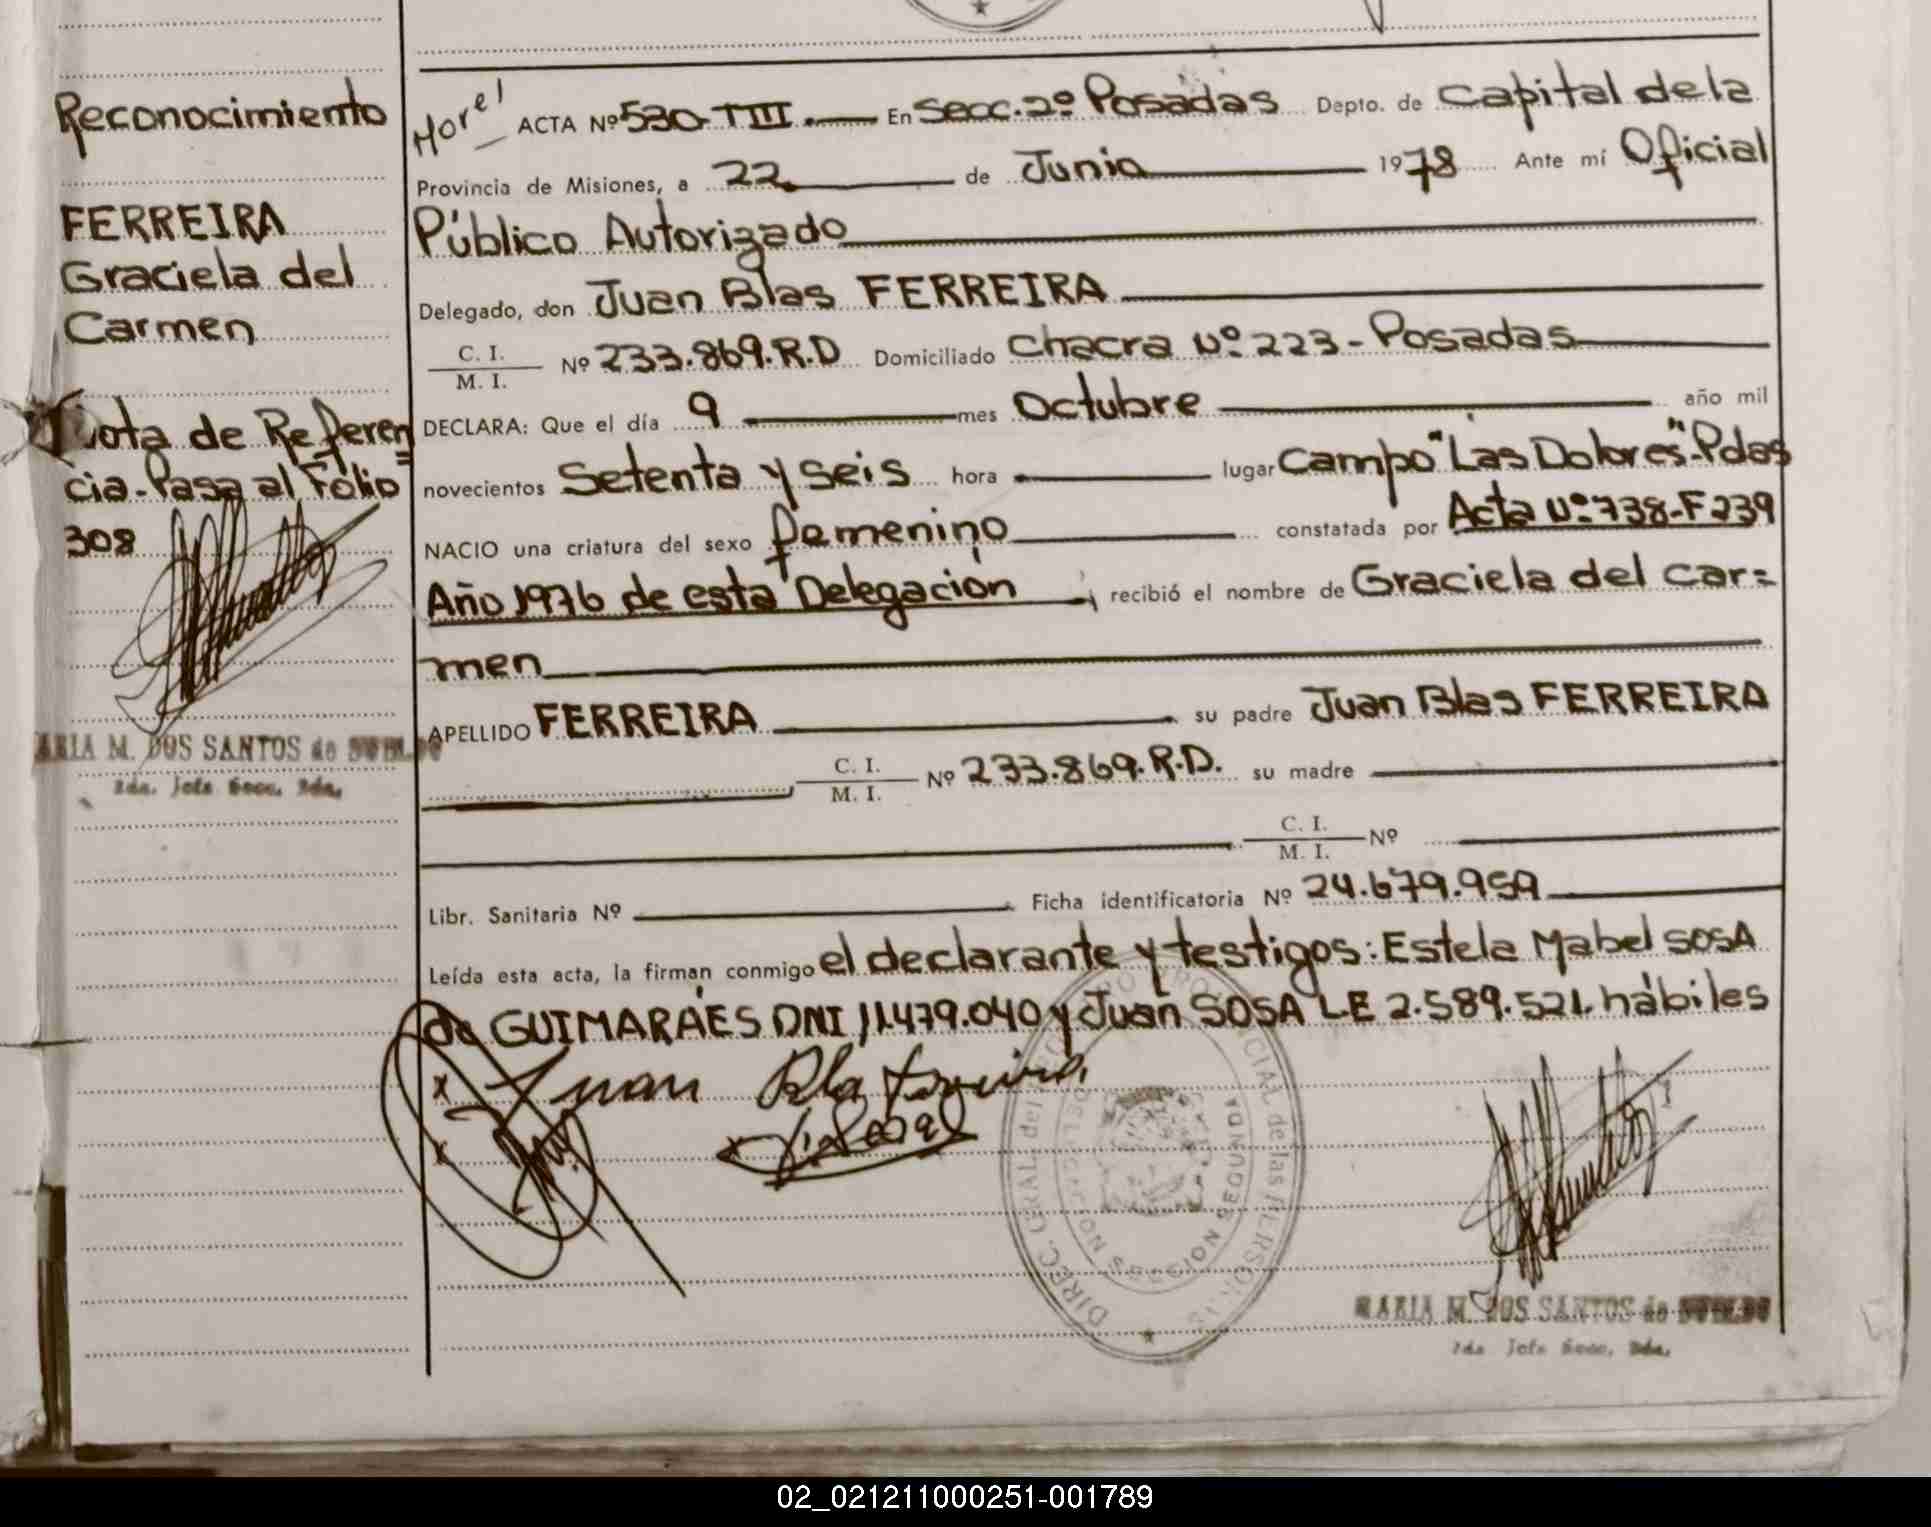 Reconocimiento
FERREIRA
Graciela del
Carmen
Nota de Referen=
cia-Pasa al Folio
308
MARIA M. DOS SANTOS de
2da. Jefe Secc. 2da.
ACTA Nº 530-TIII. En Secc. 2º Posadas Depto. de Capital de la
Provincia de Misiones, a 22 de Junio 1978 Ante mí Oficial
Público Autorizado
Delegado, don Juan Blas FERREIRA
C. I.
M. I. Nº 233.869.R.D Domiciliado Chacra Nº 223-Posadas
DECLARA: Que el día 9 mes Octubre año mil
novecientos Setenta y seis hora lugar Campo "Las Dolores"-Pdas
NACIO una criatura del sexo femenino constatada por Acta Nº 738-F239
Año 1976 de esta Delegación, recibió el nombre de Graciela del Car=
men
APELLIDO FERREIRA su padre Juan Blas FERREIRA
C. I.
M. I. Nº 233.869.R.D. su madre
C. I.
M. I. Nº
Libr. Sanitaria Nº Ficha identificatoria Nº 24.679.959
Leída esta acta, la firman conmigo el declarante y testigos: Estela Mabel SOSA
de GUIMARÁES DNI 11.479.040 y Juan SOSA L.E 2.589.521. hábiles
x Juan Bla Ferreira
x x
DIREC. GRAL. del REGISTRO PROVINCIAL de las PERSONAS
SECCION SEGUNDA
MARIA M. DOS SANTOS de
2da Jefe Secc. 2da.
02_021211000251-001789